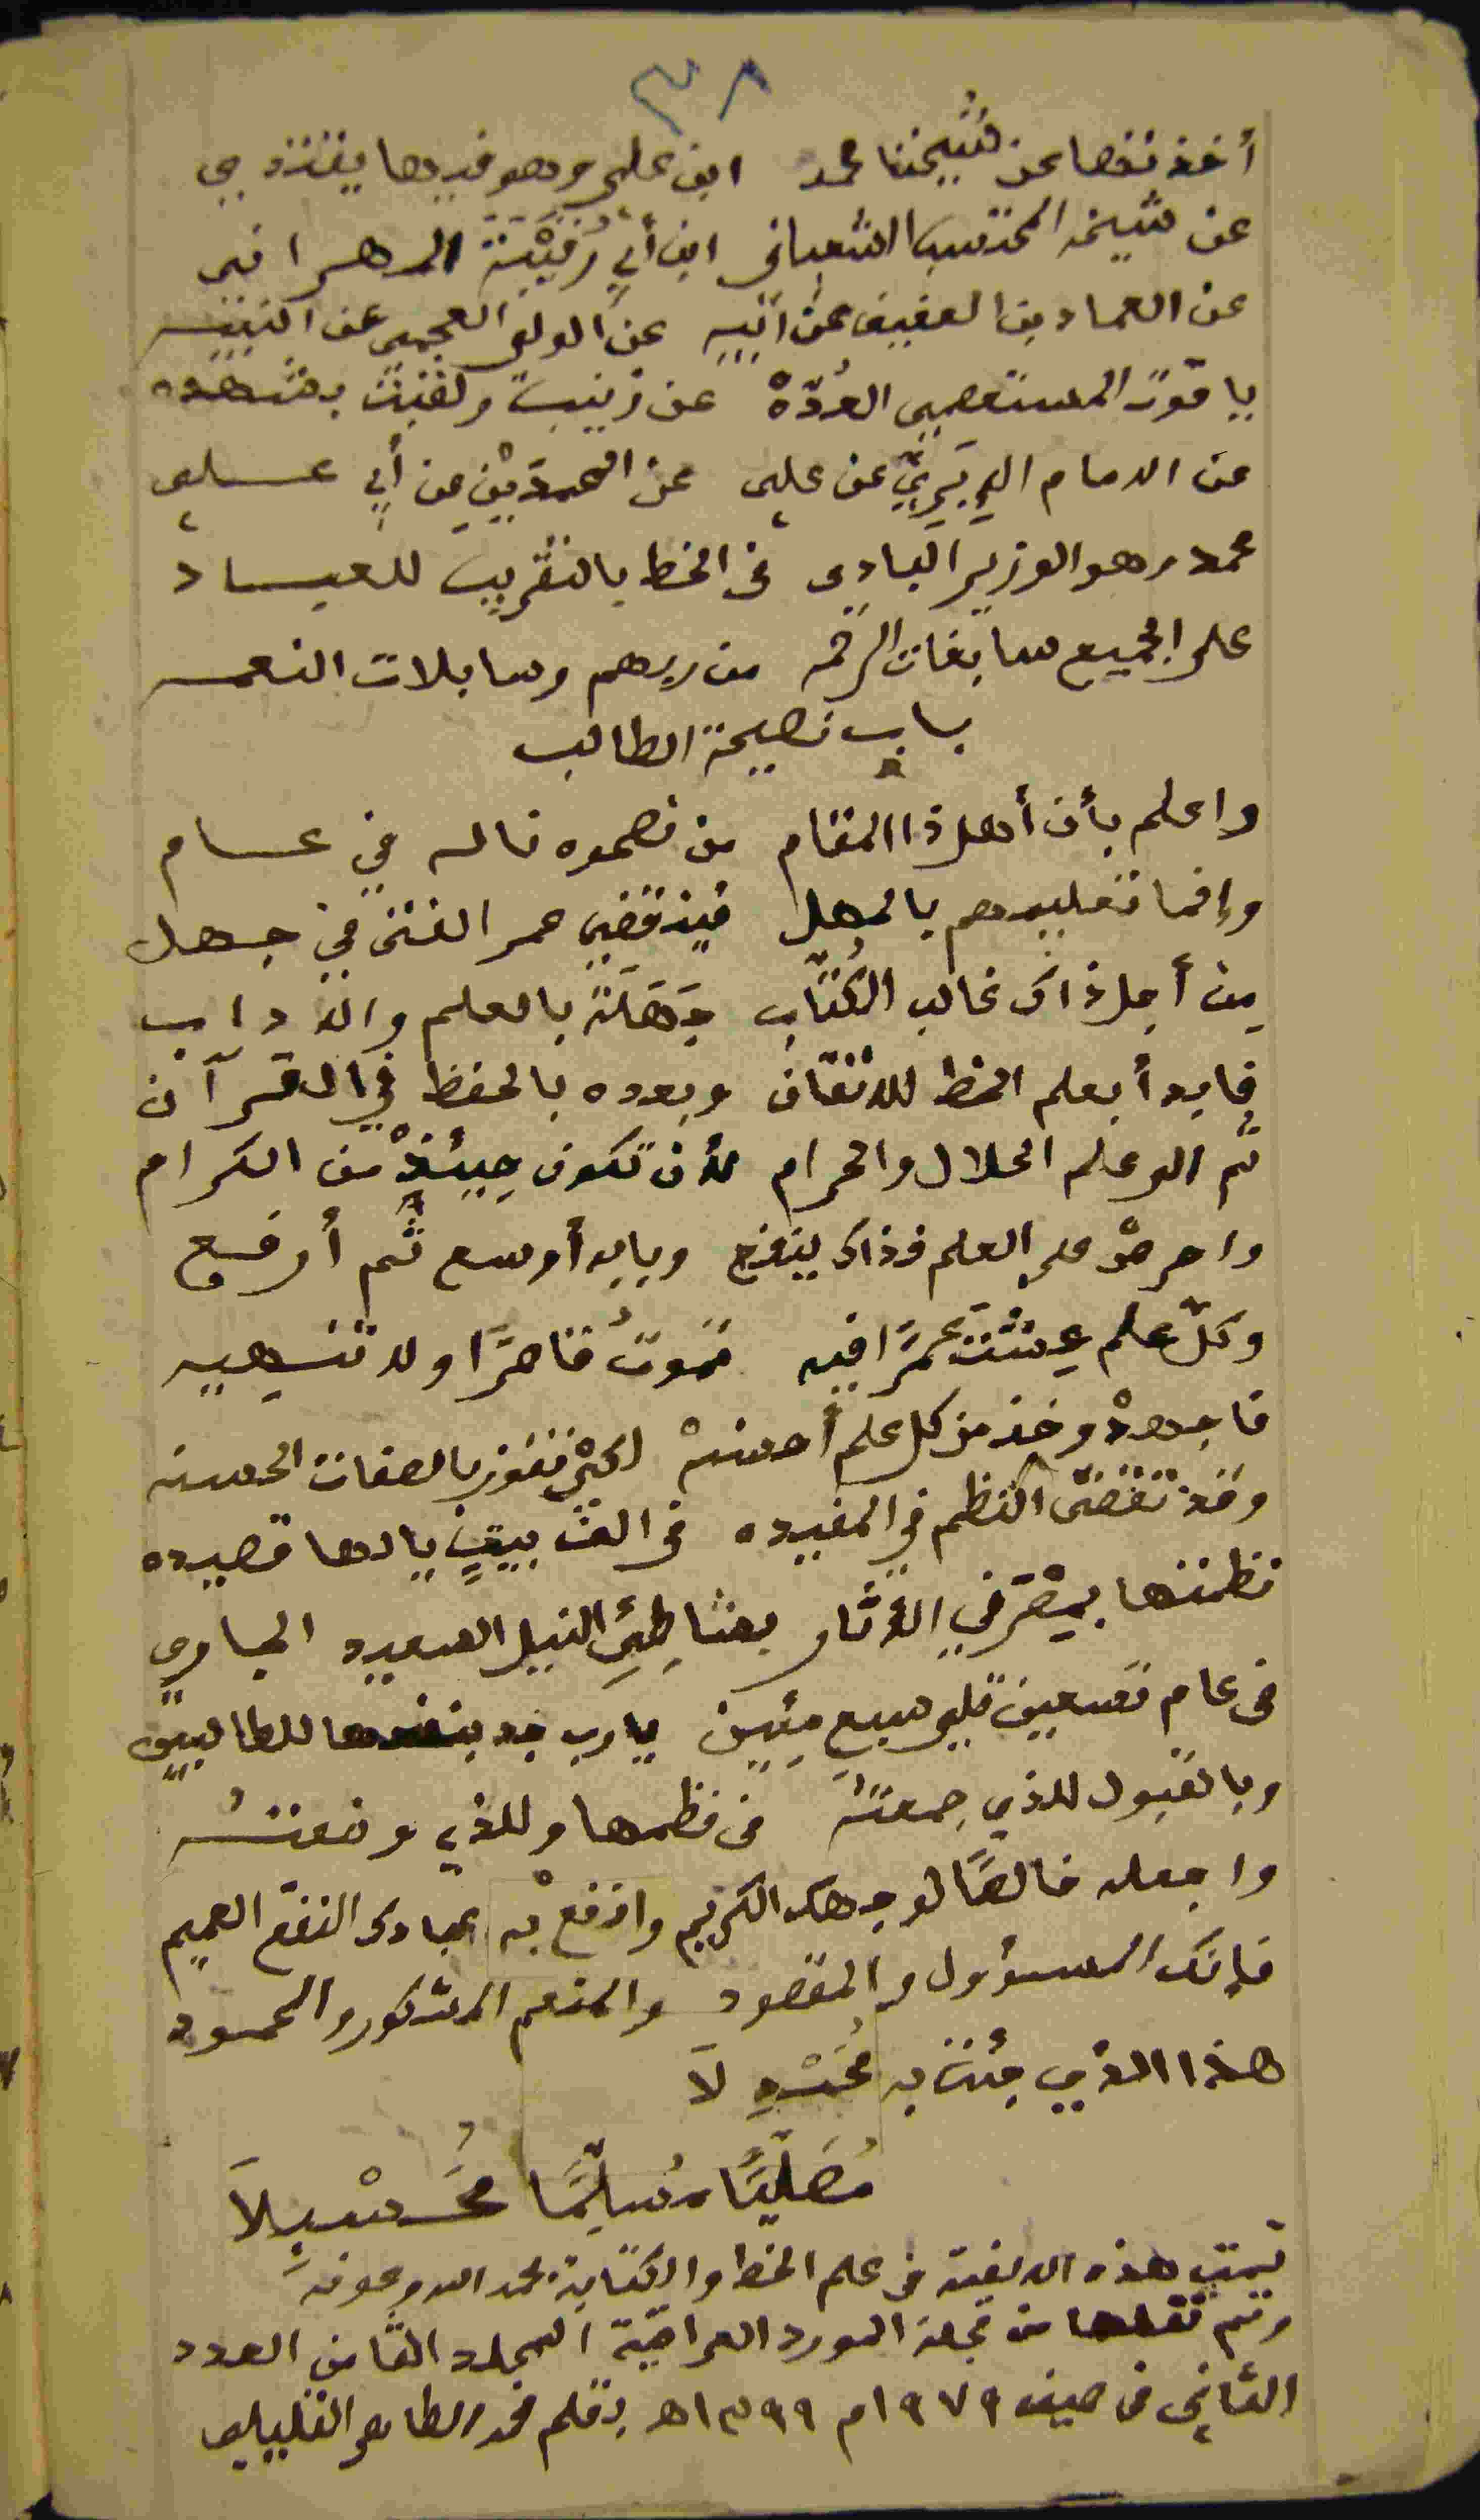 ٣٨
أخذتها عن شيخنا محمد ابن علي وهو فيها يقتدي
عن شيخه المحتسب الشعباني ابن أبي رُقَيْبَة الهراني
عن العماد بن العفيف عن أبيه عن الولي العجمي عن النبيه
ياقوت المستعصمي العُدّهْ عن زينب ولقبت بشهده
عن الامام عن علي عن المحمدَيْنِ عن أبي علي
محمد وهو الوزير البادي في الخط بالتقريب للعباد
على الجميع سابغات الرحمه من ربهم وسابلات النعمه
باب نصيحة الطالب
واعلم بأن أهل ذا المقام من نصحوه ناله في عام
وإنما تعليمهم بالمهل فينقضي عمر الفتى في جهل
من أجل ذاك غالب الكُتّاب جَهَلَةً بالعلم والآداب
فابدأ بعلم الخط للاتقان وبعده بالحفظ في القرآن
ثم الى علم الحلال والحرام لأن تكون حِينئذْ من الكرام
واحرصْ على العلم فذاك ينفع وبابه أوسع ثم أرفع
وكلّ علم عِشْتَ عمرًا فيه تموتُ قاصرًا ولا تنهيه
فاجهدْ وخذ من كل علم أحسنهْ لكيْ تفوز بالصفات الحسنه
وقد تقضّى النظم في المفيده في الف بيتٍ يالها قصيده
نظمتها بمِصْرَ في الآثار بشاطِئِ النيل السعيد الجاري
في عام تسعين تلي سبعِ مِئين يا رب جد بنفعها للطالبين
وبالقبول للذي جمعتهُ في نظمها وللذي وضعتهُ
واجعله خالصًا لوجهك الكريم وانفعْ به عبادك النفع العميم
فإنك المسؤول والمقصود والمنعم المشكور والمحمود
هذا الذي جئت به مُحَمْدِلَا
مُصَلِّيًا مُسلِّمًا مُحَسْبِلَا
تمت هذه الالفية في علم الخط والكتابة بحمد الله وعونه
وتم نقلها من مجلة المورد العراقية المجلد الثامن العدد
الثاني في صيف ١٩٧٩م ١٣٩٩هـ بقلم محمد الطاهر